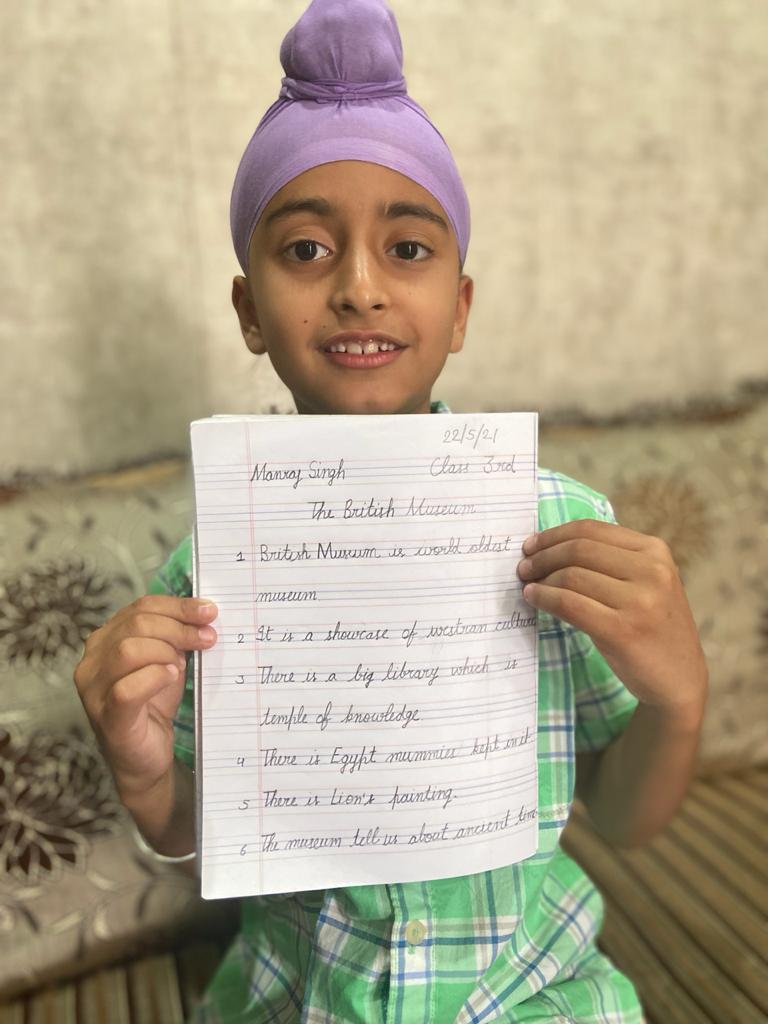 22/5/21
Manraj Singh Class 3rd
The British Museum
1 British Museum is world oldest
museum
2 It is a showcase of westran culture
3 There is a big library which is
temple of knowledge
4 There is Egypt mummies kept in it
5 There is Lion's painting.
6 The museum tell us about ancient time